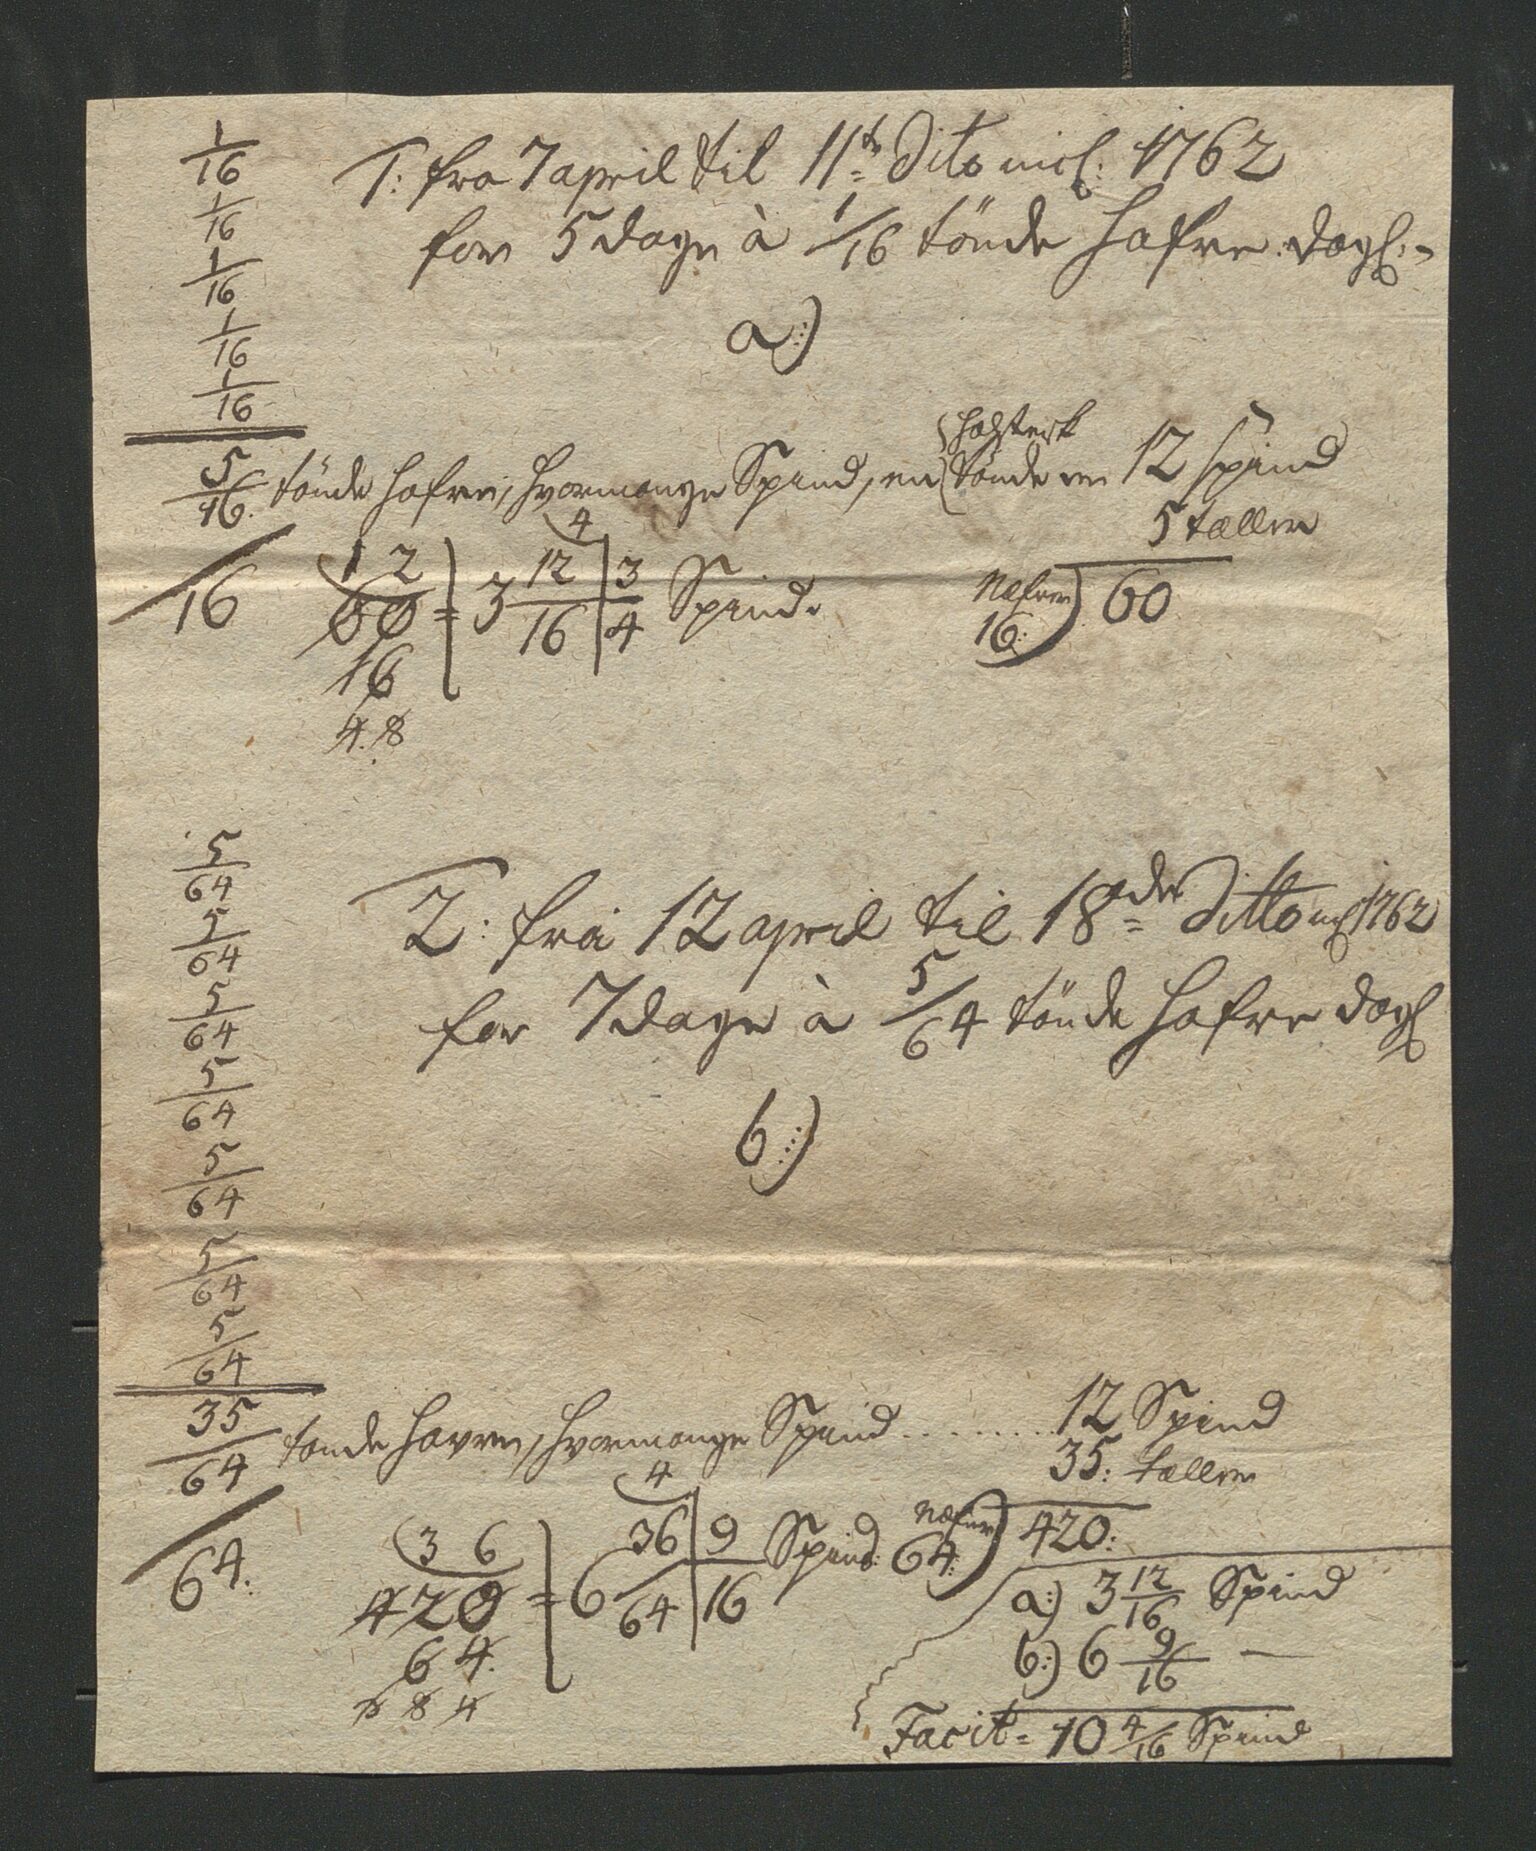 1/16
1/16
1/16
1/16
1/16
1: fra 7 april til 11te Dito incl: 1762
for 5 dage à 1/16 tönde Hafre dagl:
a:)
5/16. tönde Hafre, hvormange Spind, en tönde er 12 spind
5 tæller
16 12 60 = 3 12/16 | 3/4 Spind. Næfner 16:) 60
16
4. 8
4
5/64
5/64
5/64
5/64
5/64
5/64
5/64
2: fra 12 april til 18de Ditto incl 1762
for 7 dage à 5/64 tönde Hafre dagl
b:)
35/64 tønde Havre, hvormange Spind ........ 12 Spind
35: tæller
4
64. 36 420 = 6 36/64 | 9/16 Spind: Næfner 64:) 420:
64.
6 8 4
a:) 3 12/16 Spind
b:) 6 9/16 —
Facit = 10 4/16 Spind